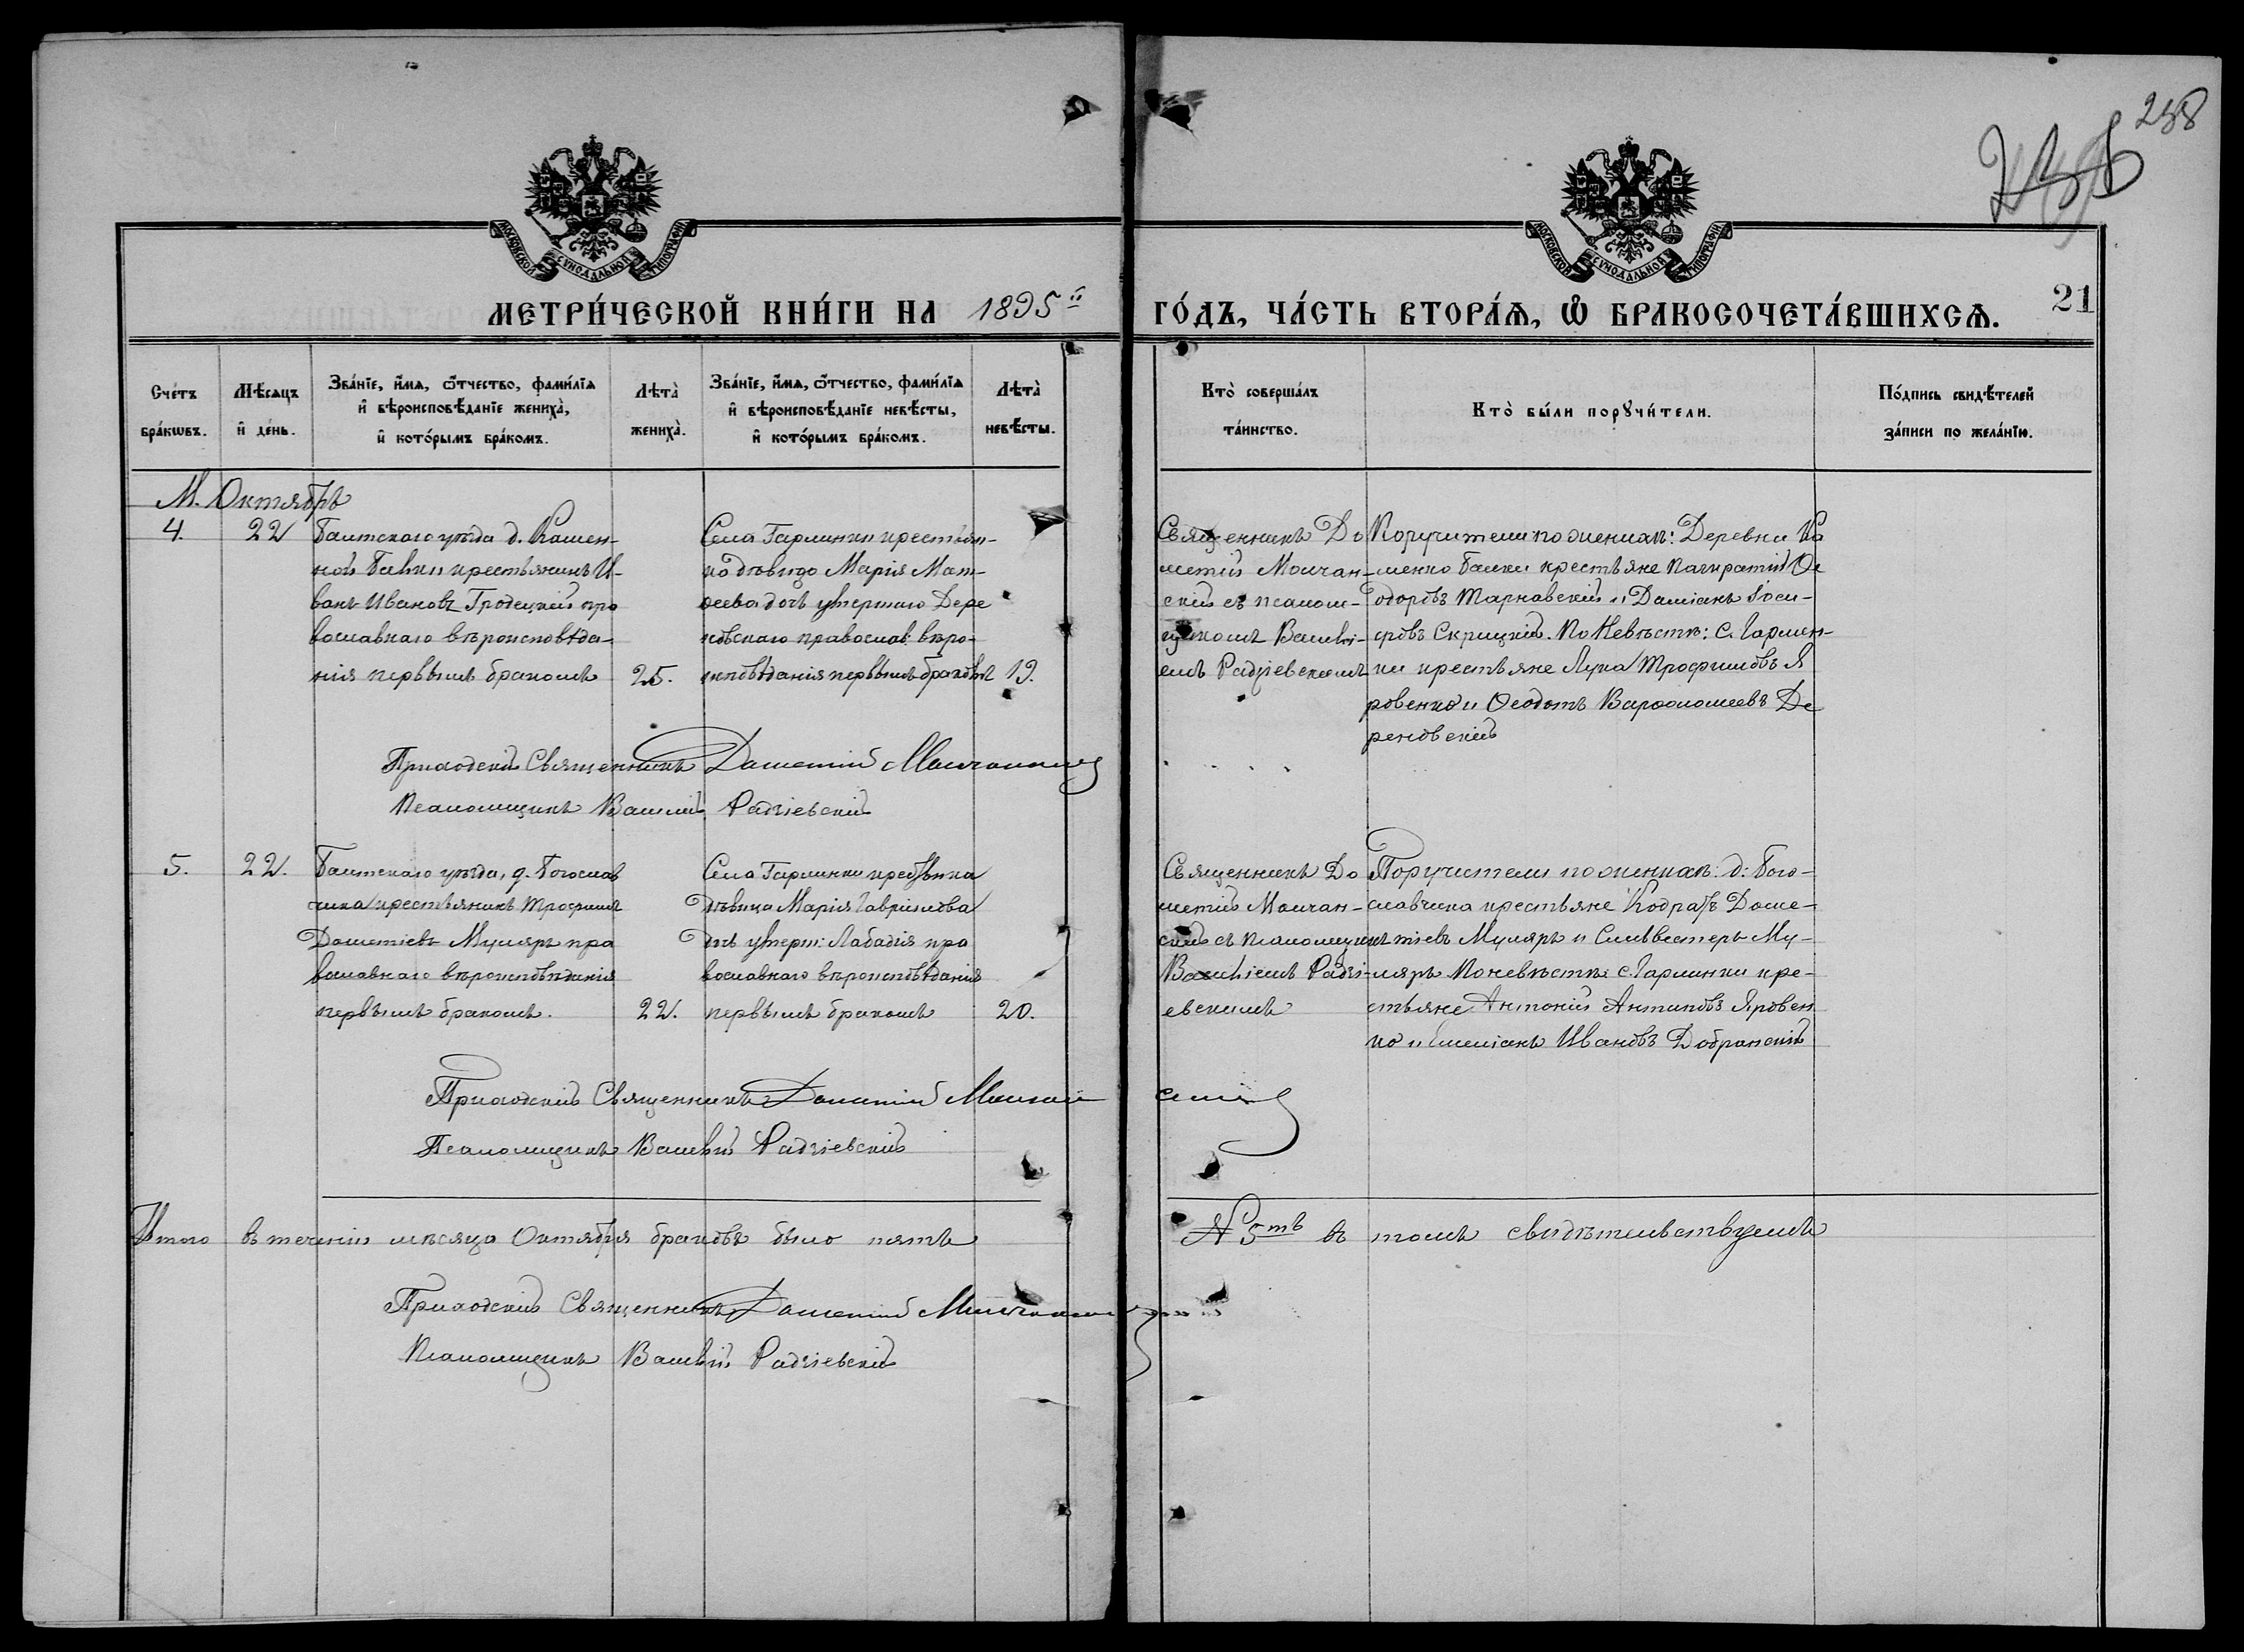 258
МОСКОВСКОЙ СѴНОДАЛЬНОЙ ТИПОГРАФІИ
МОСКОВСКОЙ СѴНОДАЛЬНОЙ ТИПОГРАФІИ
МЕТРИ́ЧЕСКОЙ КНИ́ГИ НА 1895й ГО́ДЪ, ЧА́СТЬ ВТОРА́Ѧ, Ѽ БРАКОСОЧЕТА́ВШИХСѦ.
21
Сче́тъ бра́кѡвъ.
Мѣ́сѧцъ и҆ де́нь.
Зва́нїе, и҆́мѧ, ѻ҆́тчество, фами́лїѧ
и҆ вѣроисповѣ́данїе жениха̀,
и҆ кото́рымъ бра́комъ.
Лѣта̀ жениха̀.
Зва́нїе, и҆́мѧ, ѻ҆́тчество, фами́лїѧ
и҆ вѣроисповѣ́данїе невѣ́сты,
и҆ кото́рымъ бра́комъ.
Лѣта̀ невѣ́сты.
Кто̀ соверша́лъ та́инство.
Кто̀ бы́ли порꙋчи́тели.
По́дпись свидѣ́телей за́писи по жела́нїю.
М. Октябрь
4.
22
Балтскаго уѣзда д. Камен-
ной Балки крестьянинъ И-
ванъ Ивановъ Гродецкій пра
вославнаго вѣроисповѣда-
нія первымъ бракомъ
25.
Села Гармынки крестьян-
ка дѣвица Марія Мат-
ѳеева дочь умершаго Дере
новскаго православ: вѣро-
исповѣданія первымъ бракомъ
19.
Священникъ До
метій Молчан-
скій съ псалом-
щикомъ Василі-
емъ Радзіевскимъ
Поручители по женихѣ: Деревни Ка
менко Балки крестьяне Панкратій Ѳе
одоровъ Тарнавскій и Даміанъ Іоси-
фовъ Скрицкій. По Невѣстѣ: С. Гармен-
ки крестьяне Лука Трофимовъ Я
ровенко и Ѳеодотъ Варѳоломеевъ Де
реновскій
Приходскій Священникъ Дометій Молчанскій
Псаломщикъ Василій Радзіевскій
5.
22.
Балтскаго уѣзда, д. Богослав
чика крестьянинъ Трофимъ
Дометіевъ Муляръ пра
вославнаго вѣроисповѣданія
первымъ бракомъ.
22.
Села Гармынки
дѣвица Марія Гавріилова
дочь умерш: Лабадзія пра
вославнаго вѣроисповѣданія
первымъ бракомъ
20.
Священникъ До
метій Молчан-
скій съ псаломщик
Василіемъ Радзі-
евскимъ
Поручители по женихѣ: д: Бого-
славчика крестьяне Кодратъ Доме-
тіевъ Муляръ и Сильвестеръ Му-
ляръ По невѣстѣ: с. Гармынки кре-
стьяне Антоній Антиповъ Яровен
ко и Симіанъ Ивановъ Добранскій
Приходскій Священникъ Дометій Молчанскій
Псаломщикъ Василій Радзіевскій
Итого въ теченіи мѣсяца Октября браковъ было пять № 5ть въ томъ свидѣтельствуемъ
Приходскій Священникъ Дометій Молчанскій
Псаломщикъ Василій Радзіевскій